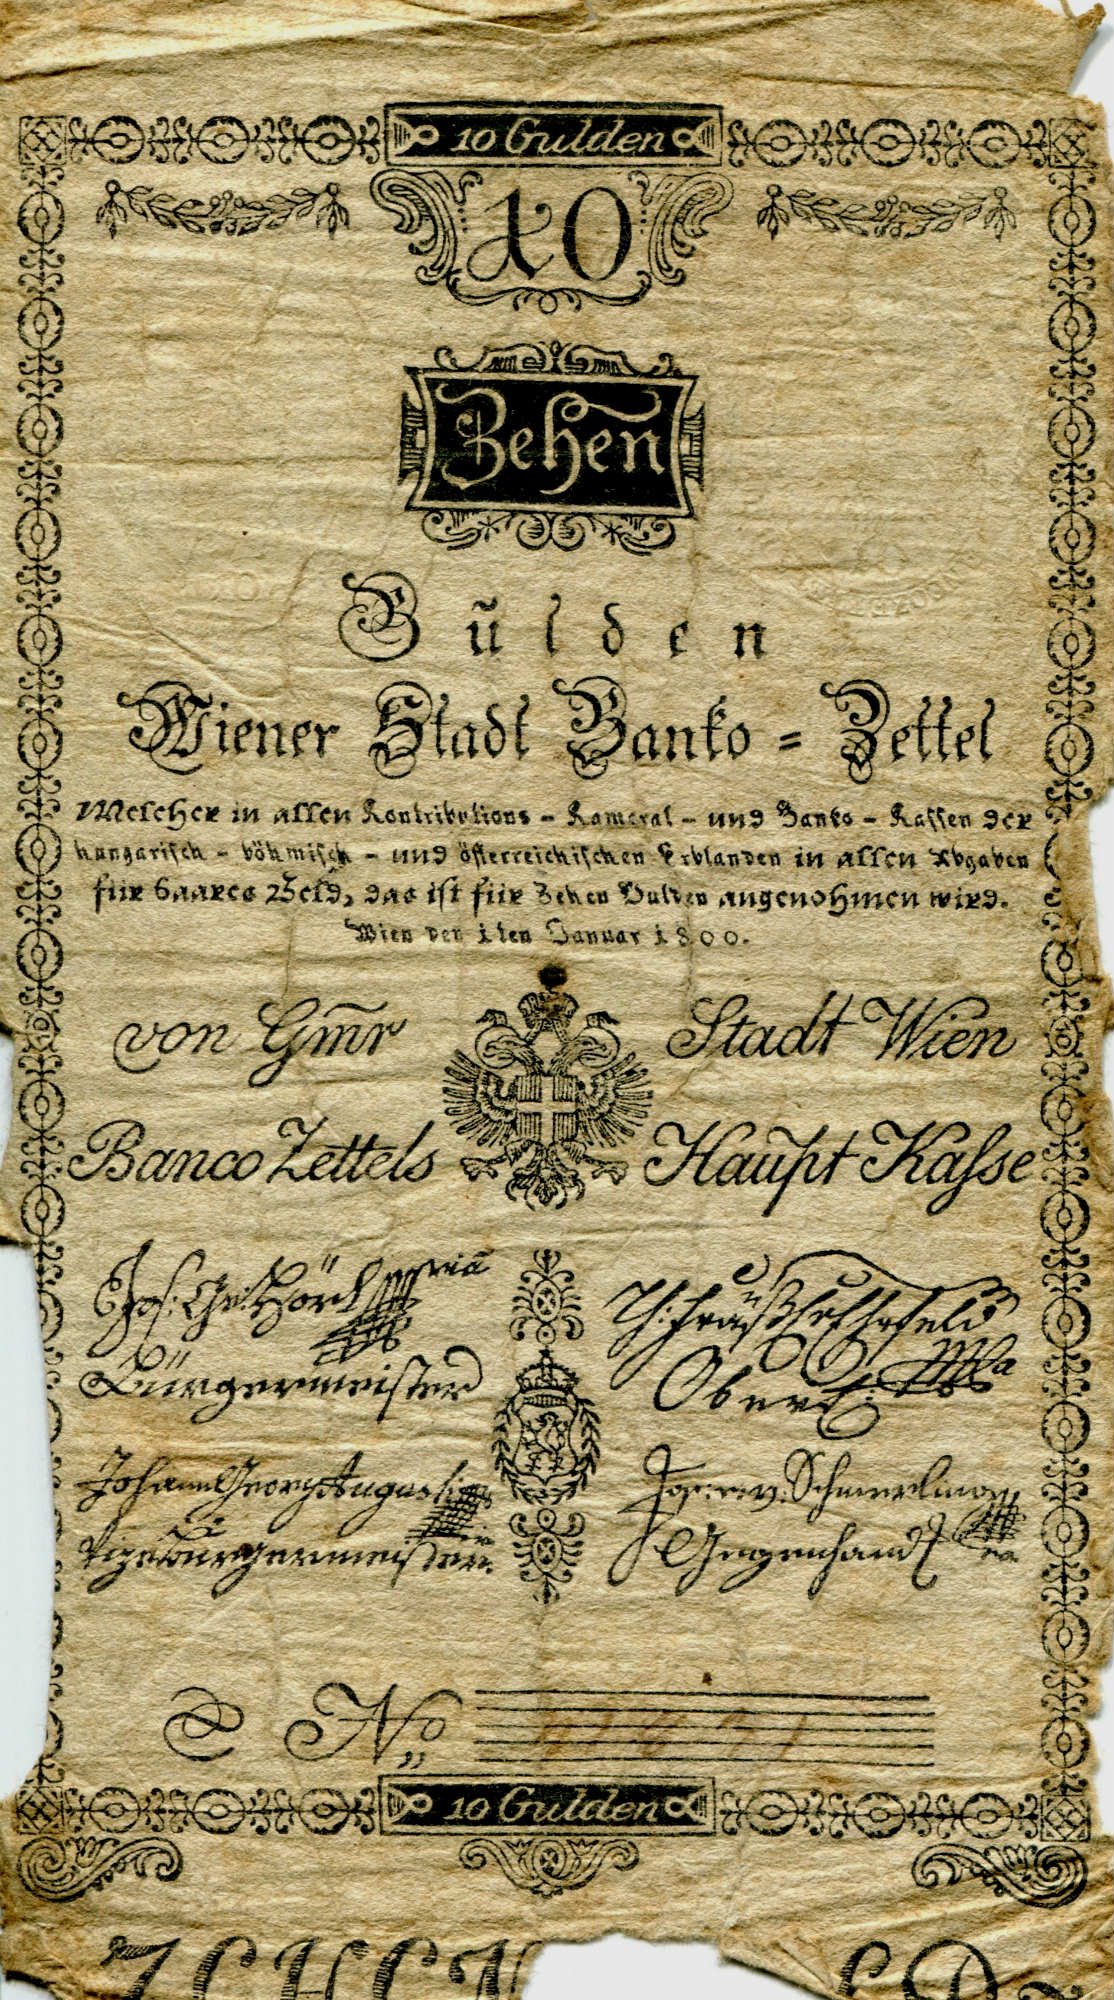 10 Gulden
10
Zehen
Gulden
Wiener Stadt Banko = Zettel
Welcher in allen Kontributions - Kameral - und Banko - Kassen der
hungarisch - böhmisch - und österreichischen Erblanden in allen Abgaben
für baares Geld, das ist für Zehen Gulden angenohmen wird.
Wien den 1ten Januar 1800.
von Gmr Stadt Wien
Banco Zettels Haupt Kasse
Jos: Ge: Hörl
Bürgermeister
Obereinn
Johann Georg Augusti
VizeBürgermeister
Jos: v: Schmerling
Gegenhand
No
10 Gulden